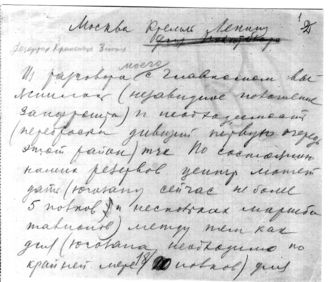 Москва Кремль Ленину
Из разговора моего с Главкомом вы
яснилась (незавидное положение
Запфронта) и необходимость
(переброски дивизий первую очередь
этот район) тчк По состоянию
наших резервов центр может
дать (Югозапу сейчас не более
5 полков) и несколько маршба
тальонов) между тем как
для (Югозапа необходимо по
крайней мере 18 полков) для